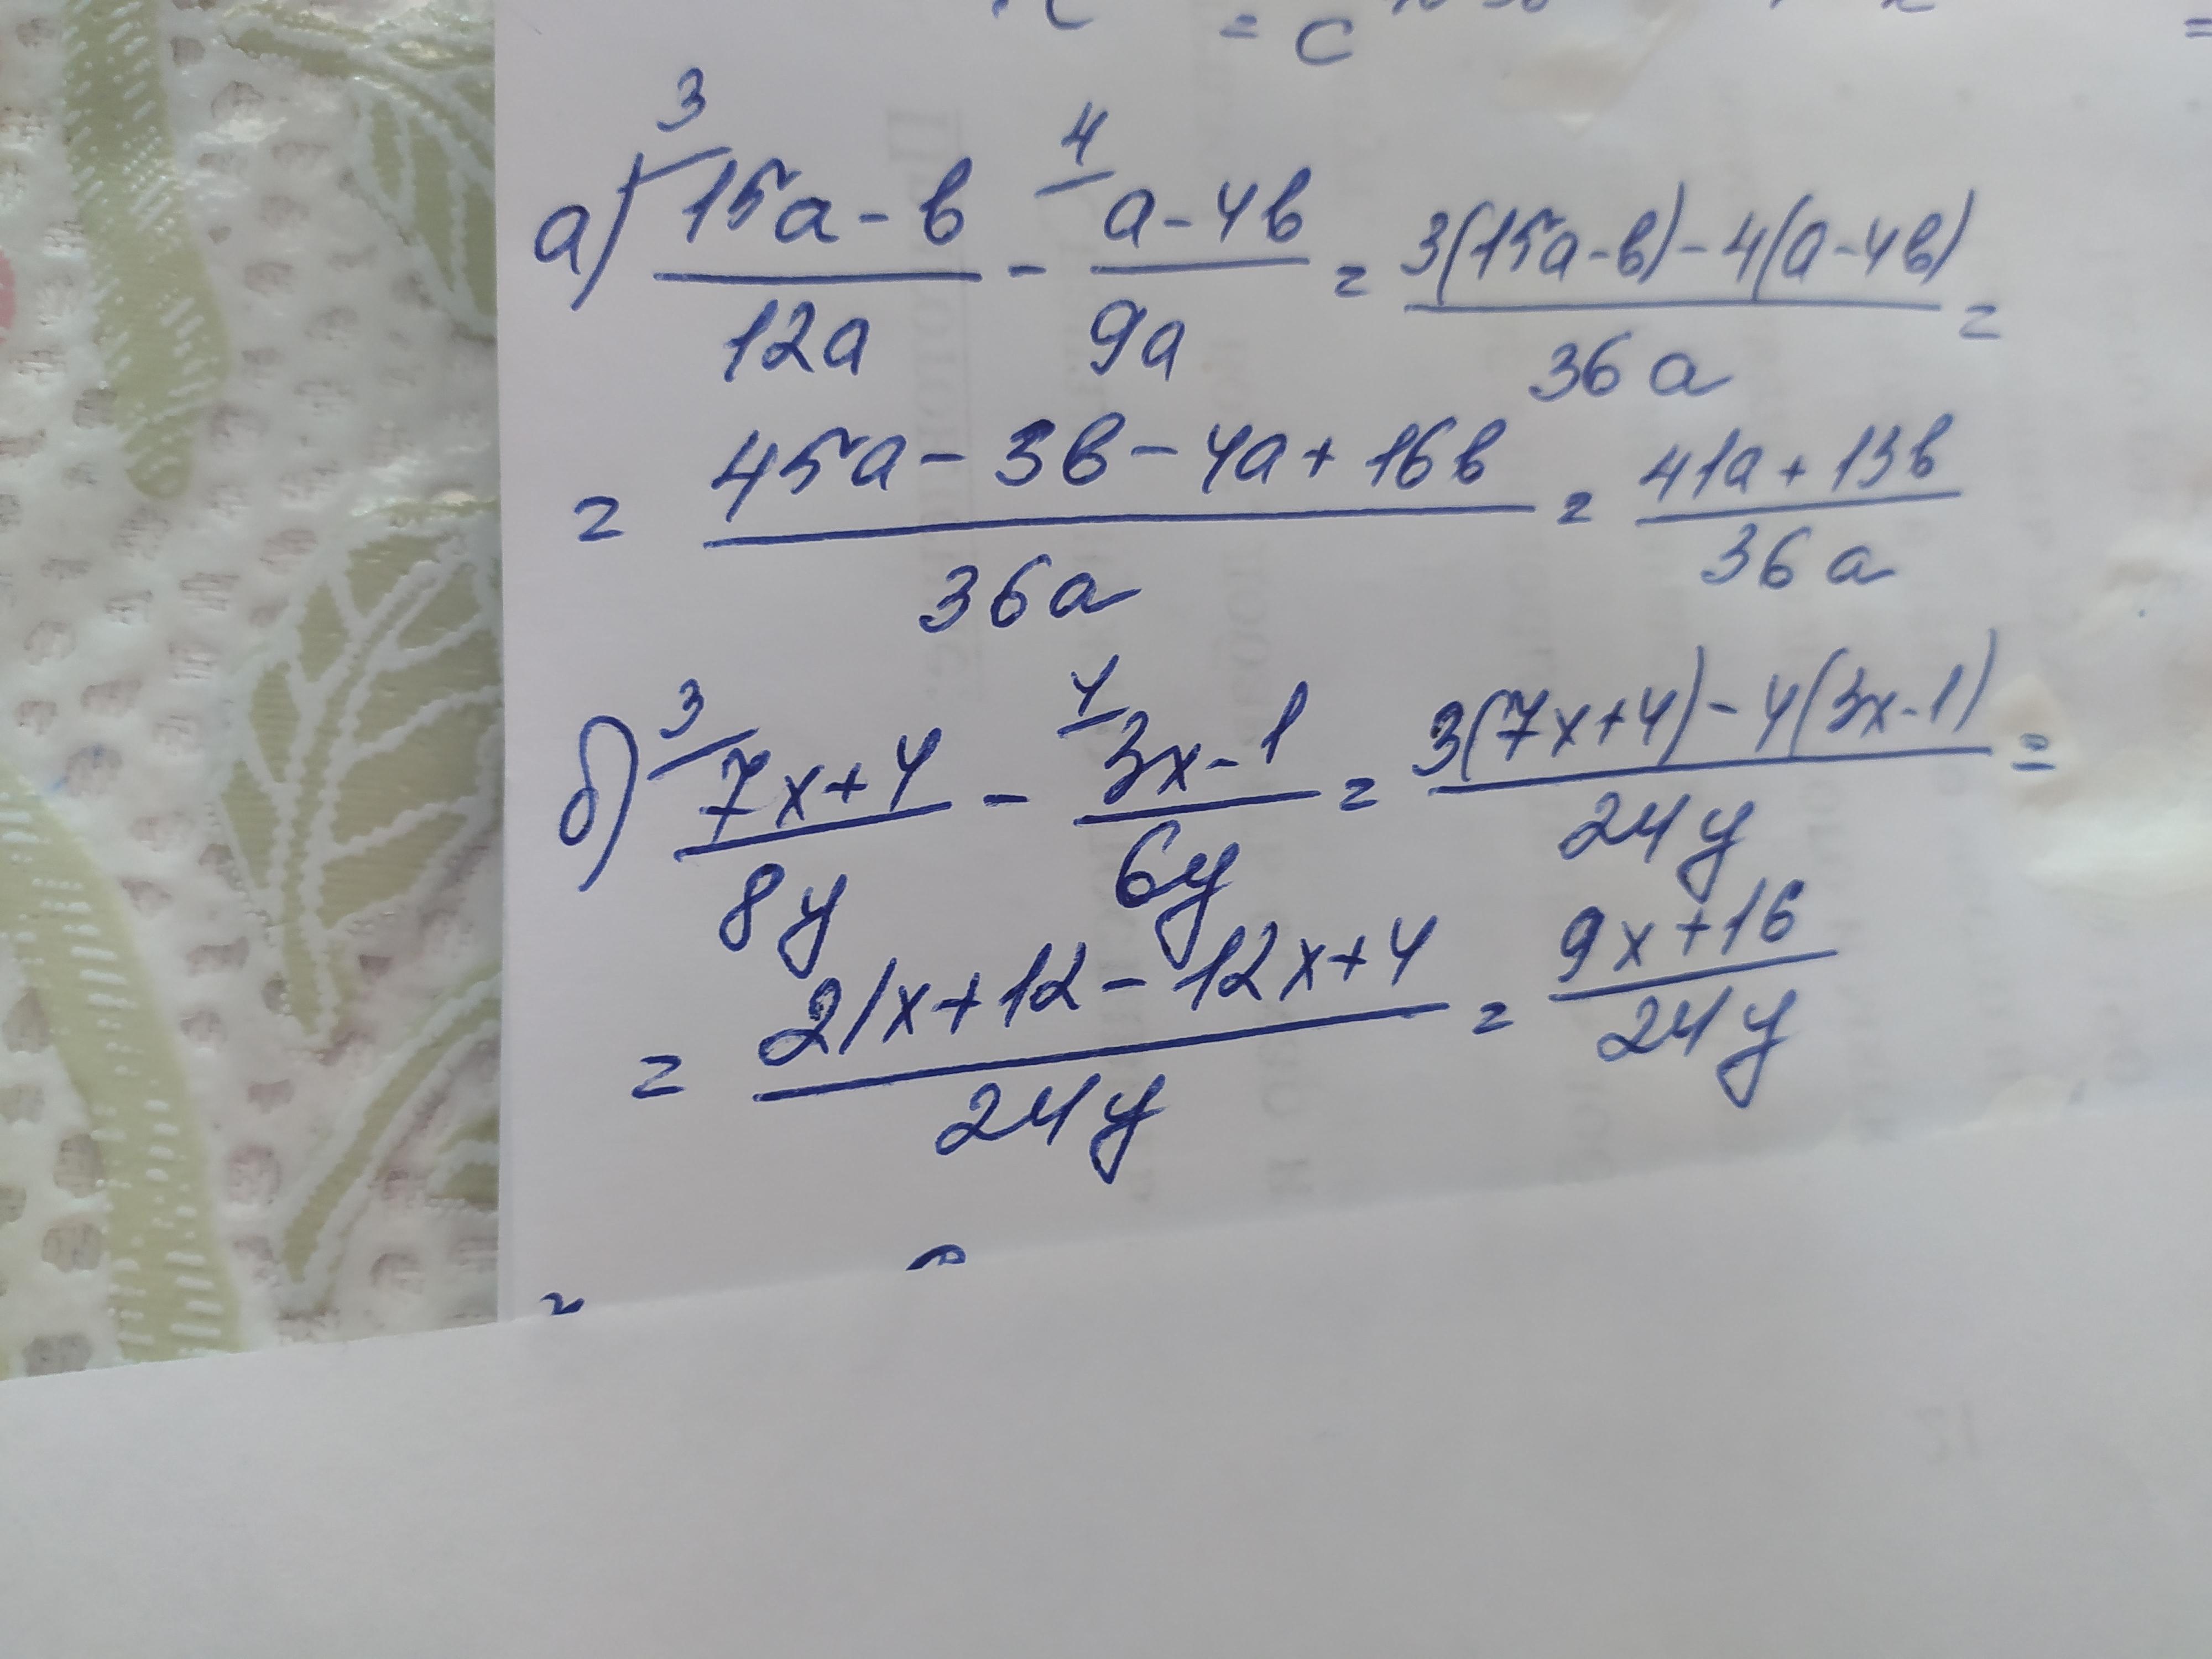 = c
а) 3/ (15a - b)/(12a) - 4/ (a - 4b)/(9a) = (3(15a - b) - 4(a - 4b))/(36a) =
= (45a - 3b - 4a + 16b)/(36a) = (41a + 13b)/(36a)
б) 3/ (7x + 4)/(8y) - 4/ (3x - 1)/(6y) = (3(7x + 4) - 4(3x - 1))/(24y) =
= (21x + 12 - 12x + 4)/(24y) = (9x + 16)/(24y)